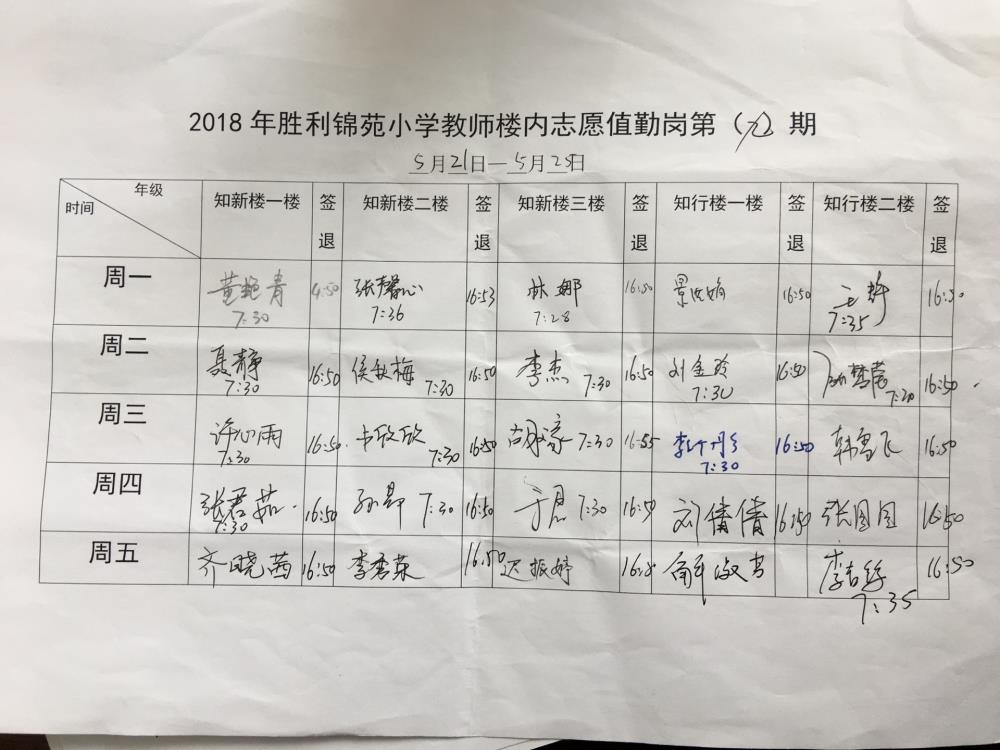 2018年胜利锦苑小学教师楼内志愿值勤岗第（九）期
5月21日—5月25日
年级 时间 知新楼一楼 签退 知新楼二楼 签退 知新楼三楼 签退 知行楼一楼 签退 知行楼二楼 签退
周一 董艳青 4:50 张馨心 16:53 林娜 16:50 16:50 16:50
7:30 7:36 7:28 7:35
周二 聂静 16:50 侯秋梅 7:30 16:50 李杰 7:30 16:50 刘金玲 16:50 16:50
7:30 7:30 7:20
周三 许心雨 16:50 韦欣欣 16:50 胡濠 7:30 16:55 16:50 韩雪飞 16:50
7:30 7:30 7:30
周四 张君茹 16:50 孙静 7:30 16:50 于恩 7:30 16:50 刘倩倩 16:50 张圆圆 16:50
7:30
周五 齐晓茜 16:50 李秀荣 16:50 迟振婷 16:50
7:35